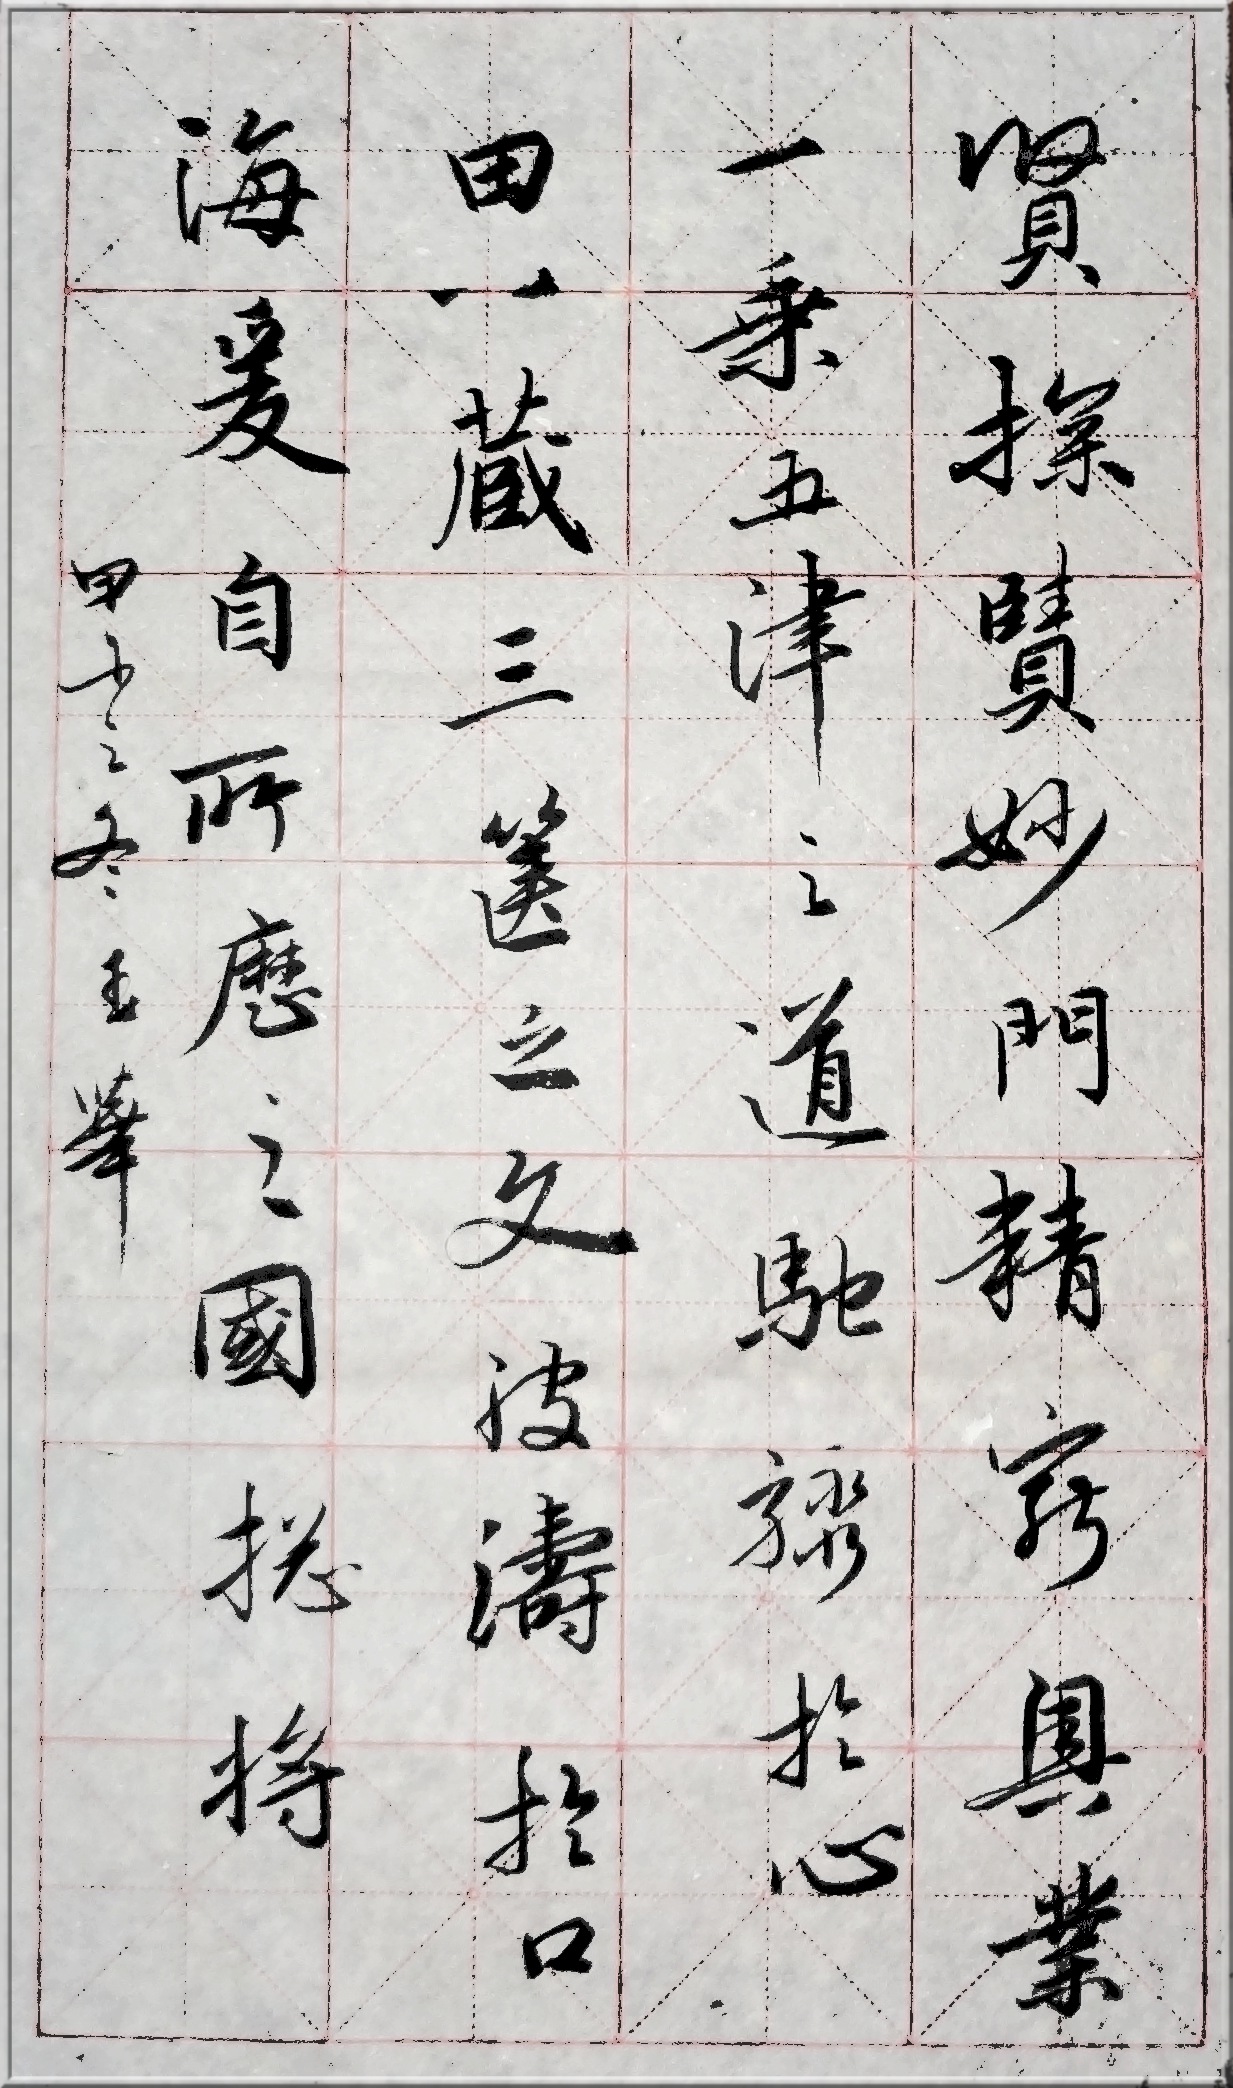 賢探賾妙門精窮奧業
一乘五律之道馳驟於心
田八藏三篋之文波濤於口
海爰自所歷之國捴將
甲之冬玉華